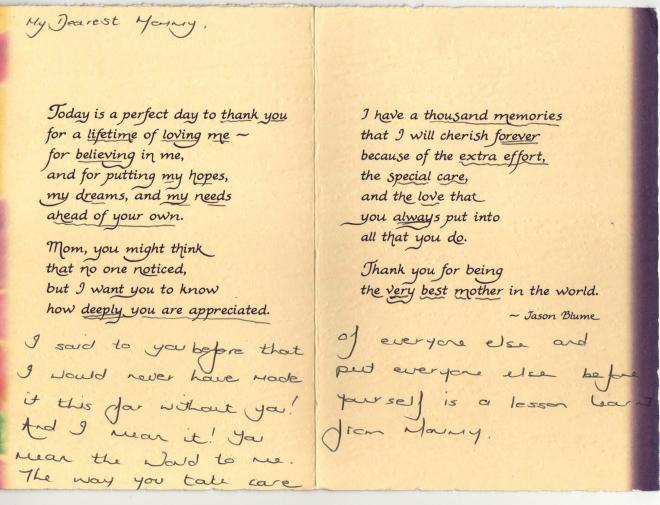 My Dearest Mommy,
Today is a perfect day to thank you
for a lifetime of loving me ~
for believing in me,
and for putting my hopes,
my dreams, and my needs
ahead of your own.
Mom, you might think
that no one noticed,
but I want you to know
how deeply you are appreciated.
I said to you before that
I would never have made
it this far without you!
And I mean it! You
mean the World to me.
The way you take care
I have a thousand memories
that I will cherish forever
because of the extra effort,
the special care,
and the love that
you always put into
all that you do.
Thank you for being
the very best mother in the world.
~ Jason Blume
of everyone else and
put everyone else before
yourself is a lesson learnt
from Mommy.